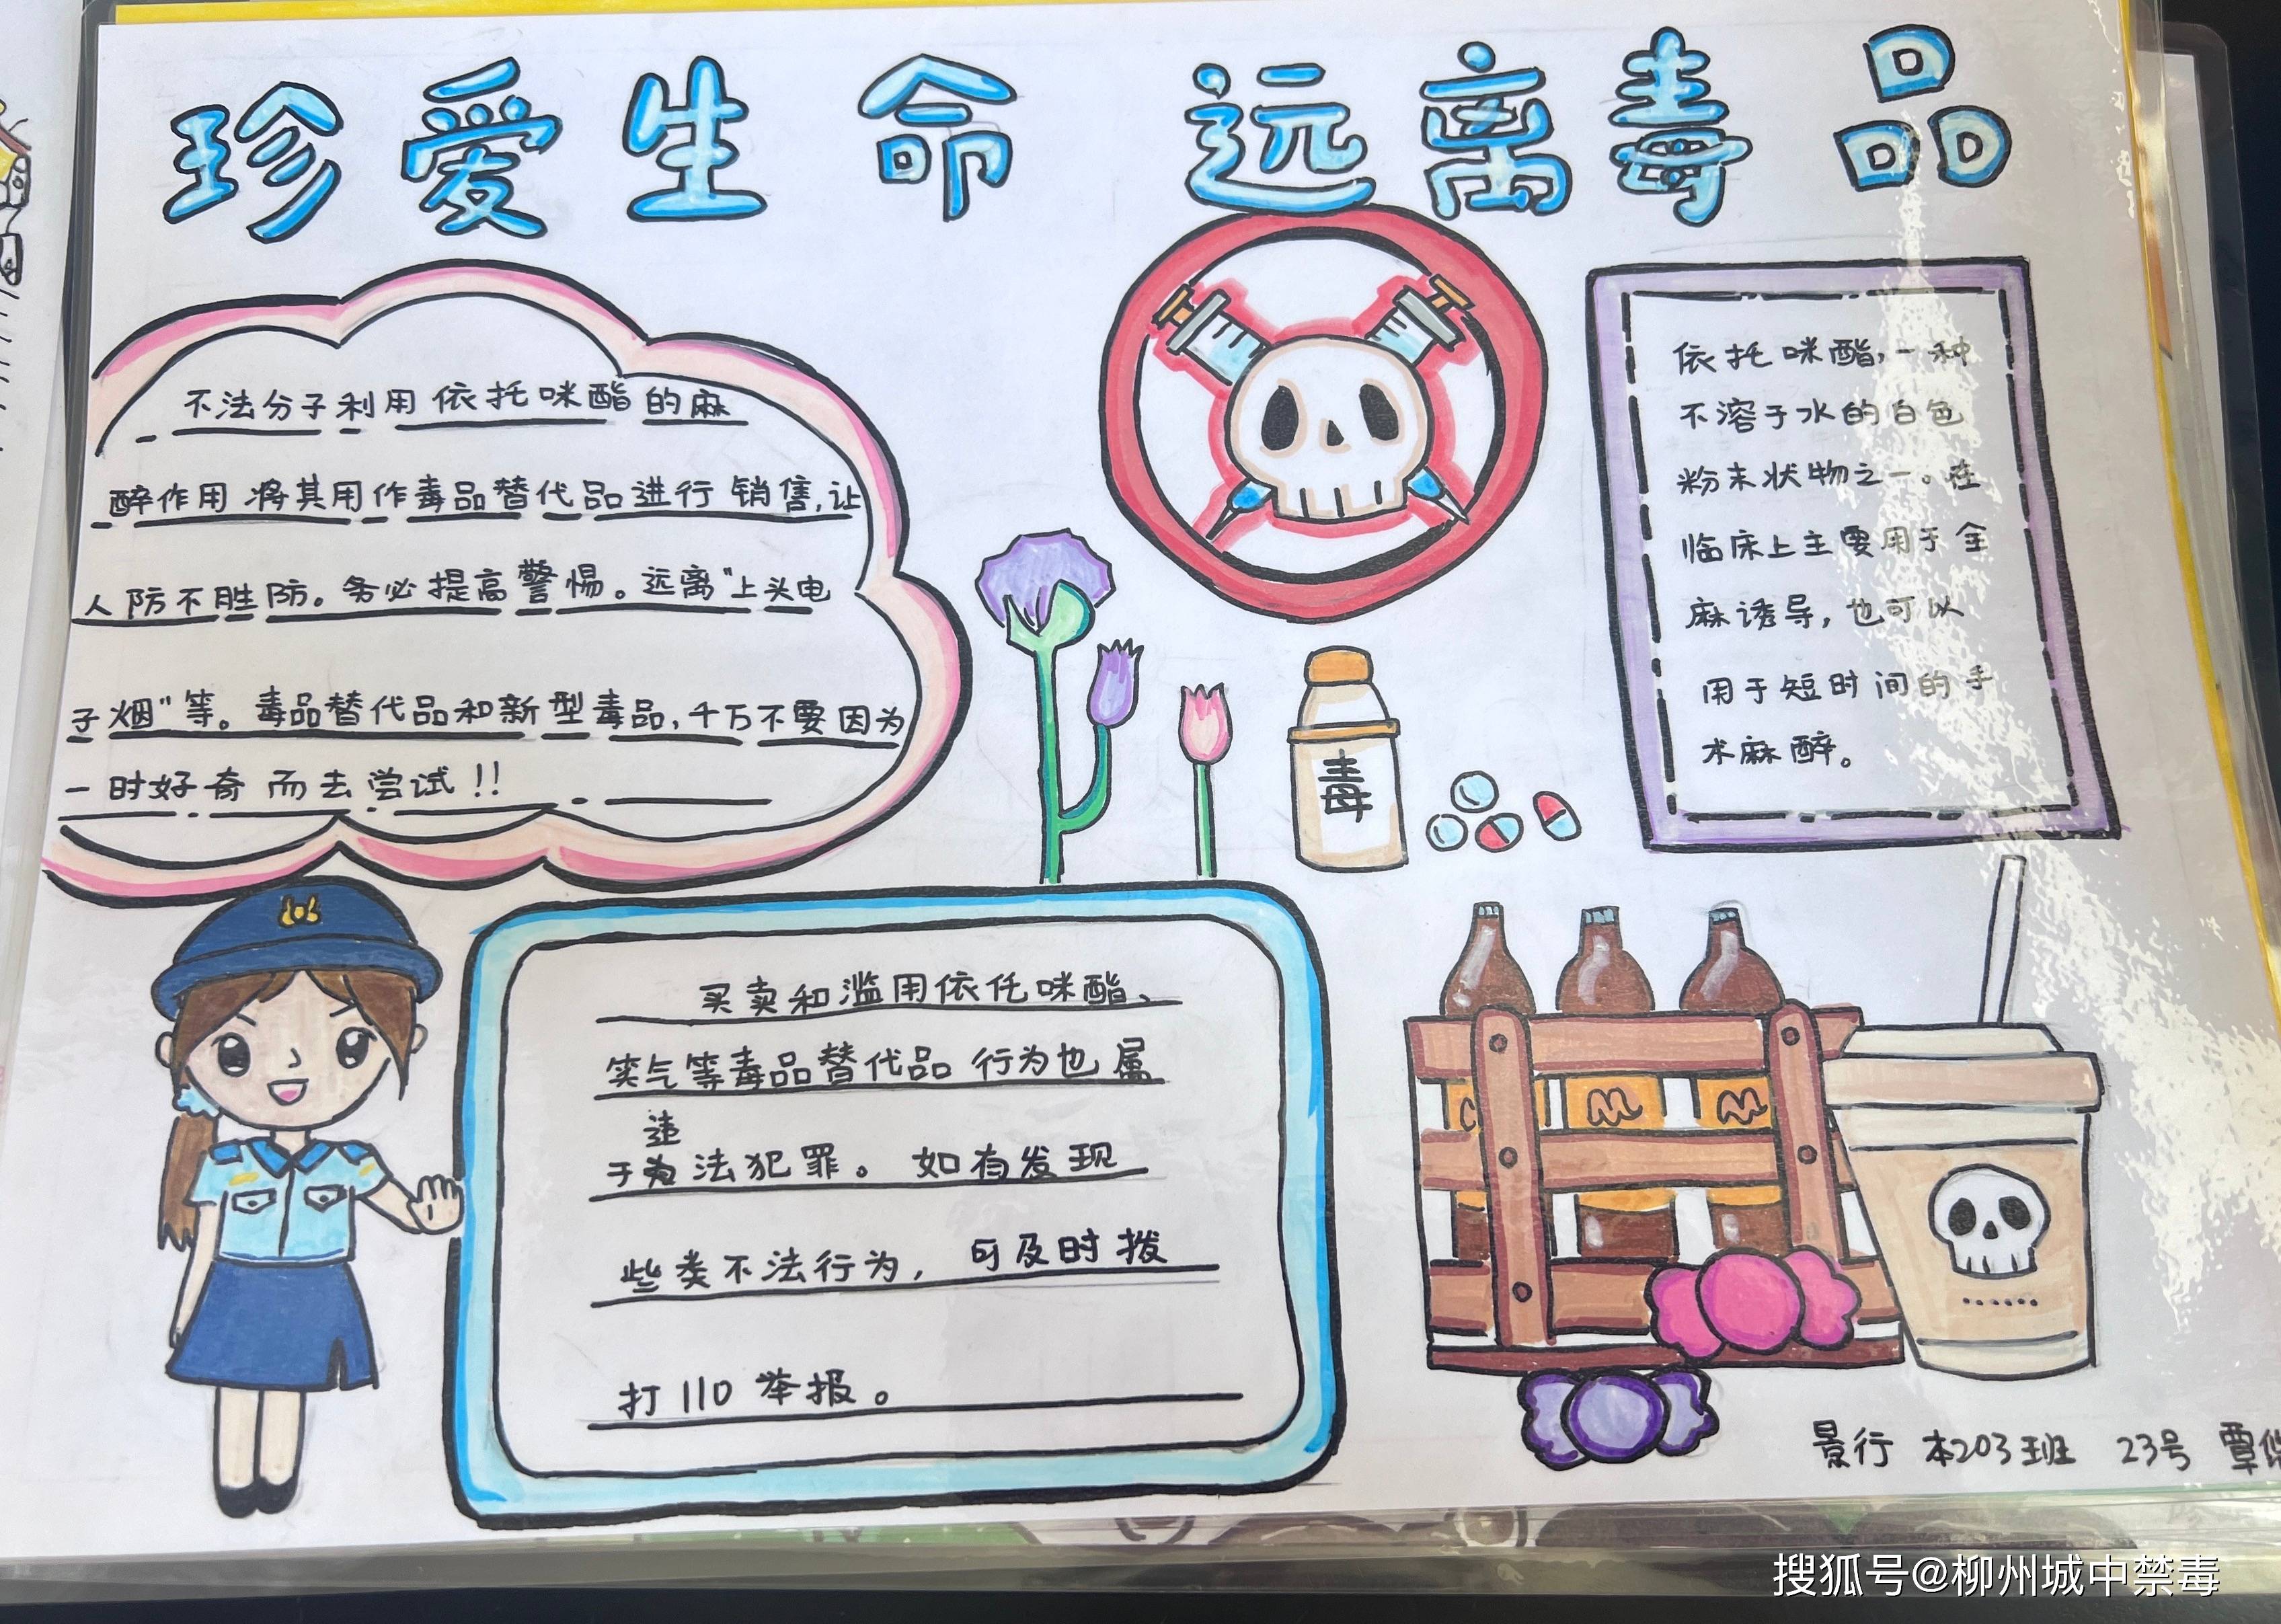 珍爱生命 远离毒品
不法分子利用依托咪酯的麻
醉作用 将其用作毒品替代品进行销售,让
人防不胜防。务必提高警惕。远离"上头电
子烟"等。毒品替代品和新型毒品,千万不要因为
一时好奇而去尝试!!
依托咪酯,一种
不溶于水的白色
粉末状物之一。在
临床上主要用于全
麻诱导,也可以
用于短时间的手
术麻醉。
毒
买卖和滥用依托咪酯、
笑气等毒品替代品 行为也属
于违法犯罪。如有发现
些类不法行为,可及时拨
打110举报。
景行 本203班 23号 覃
搜狐号@柳州城中禁毒